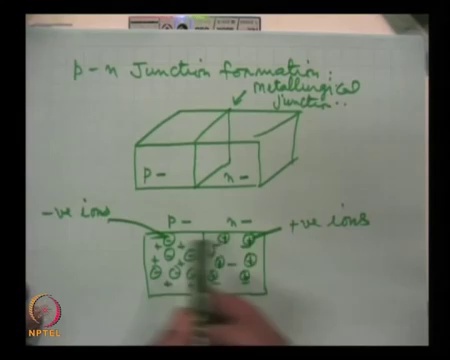 p-n Junction formation:
metallurgical
junction..
p-
n-
-ve ions
p-
n-
+ve ions
NPTEL